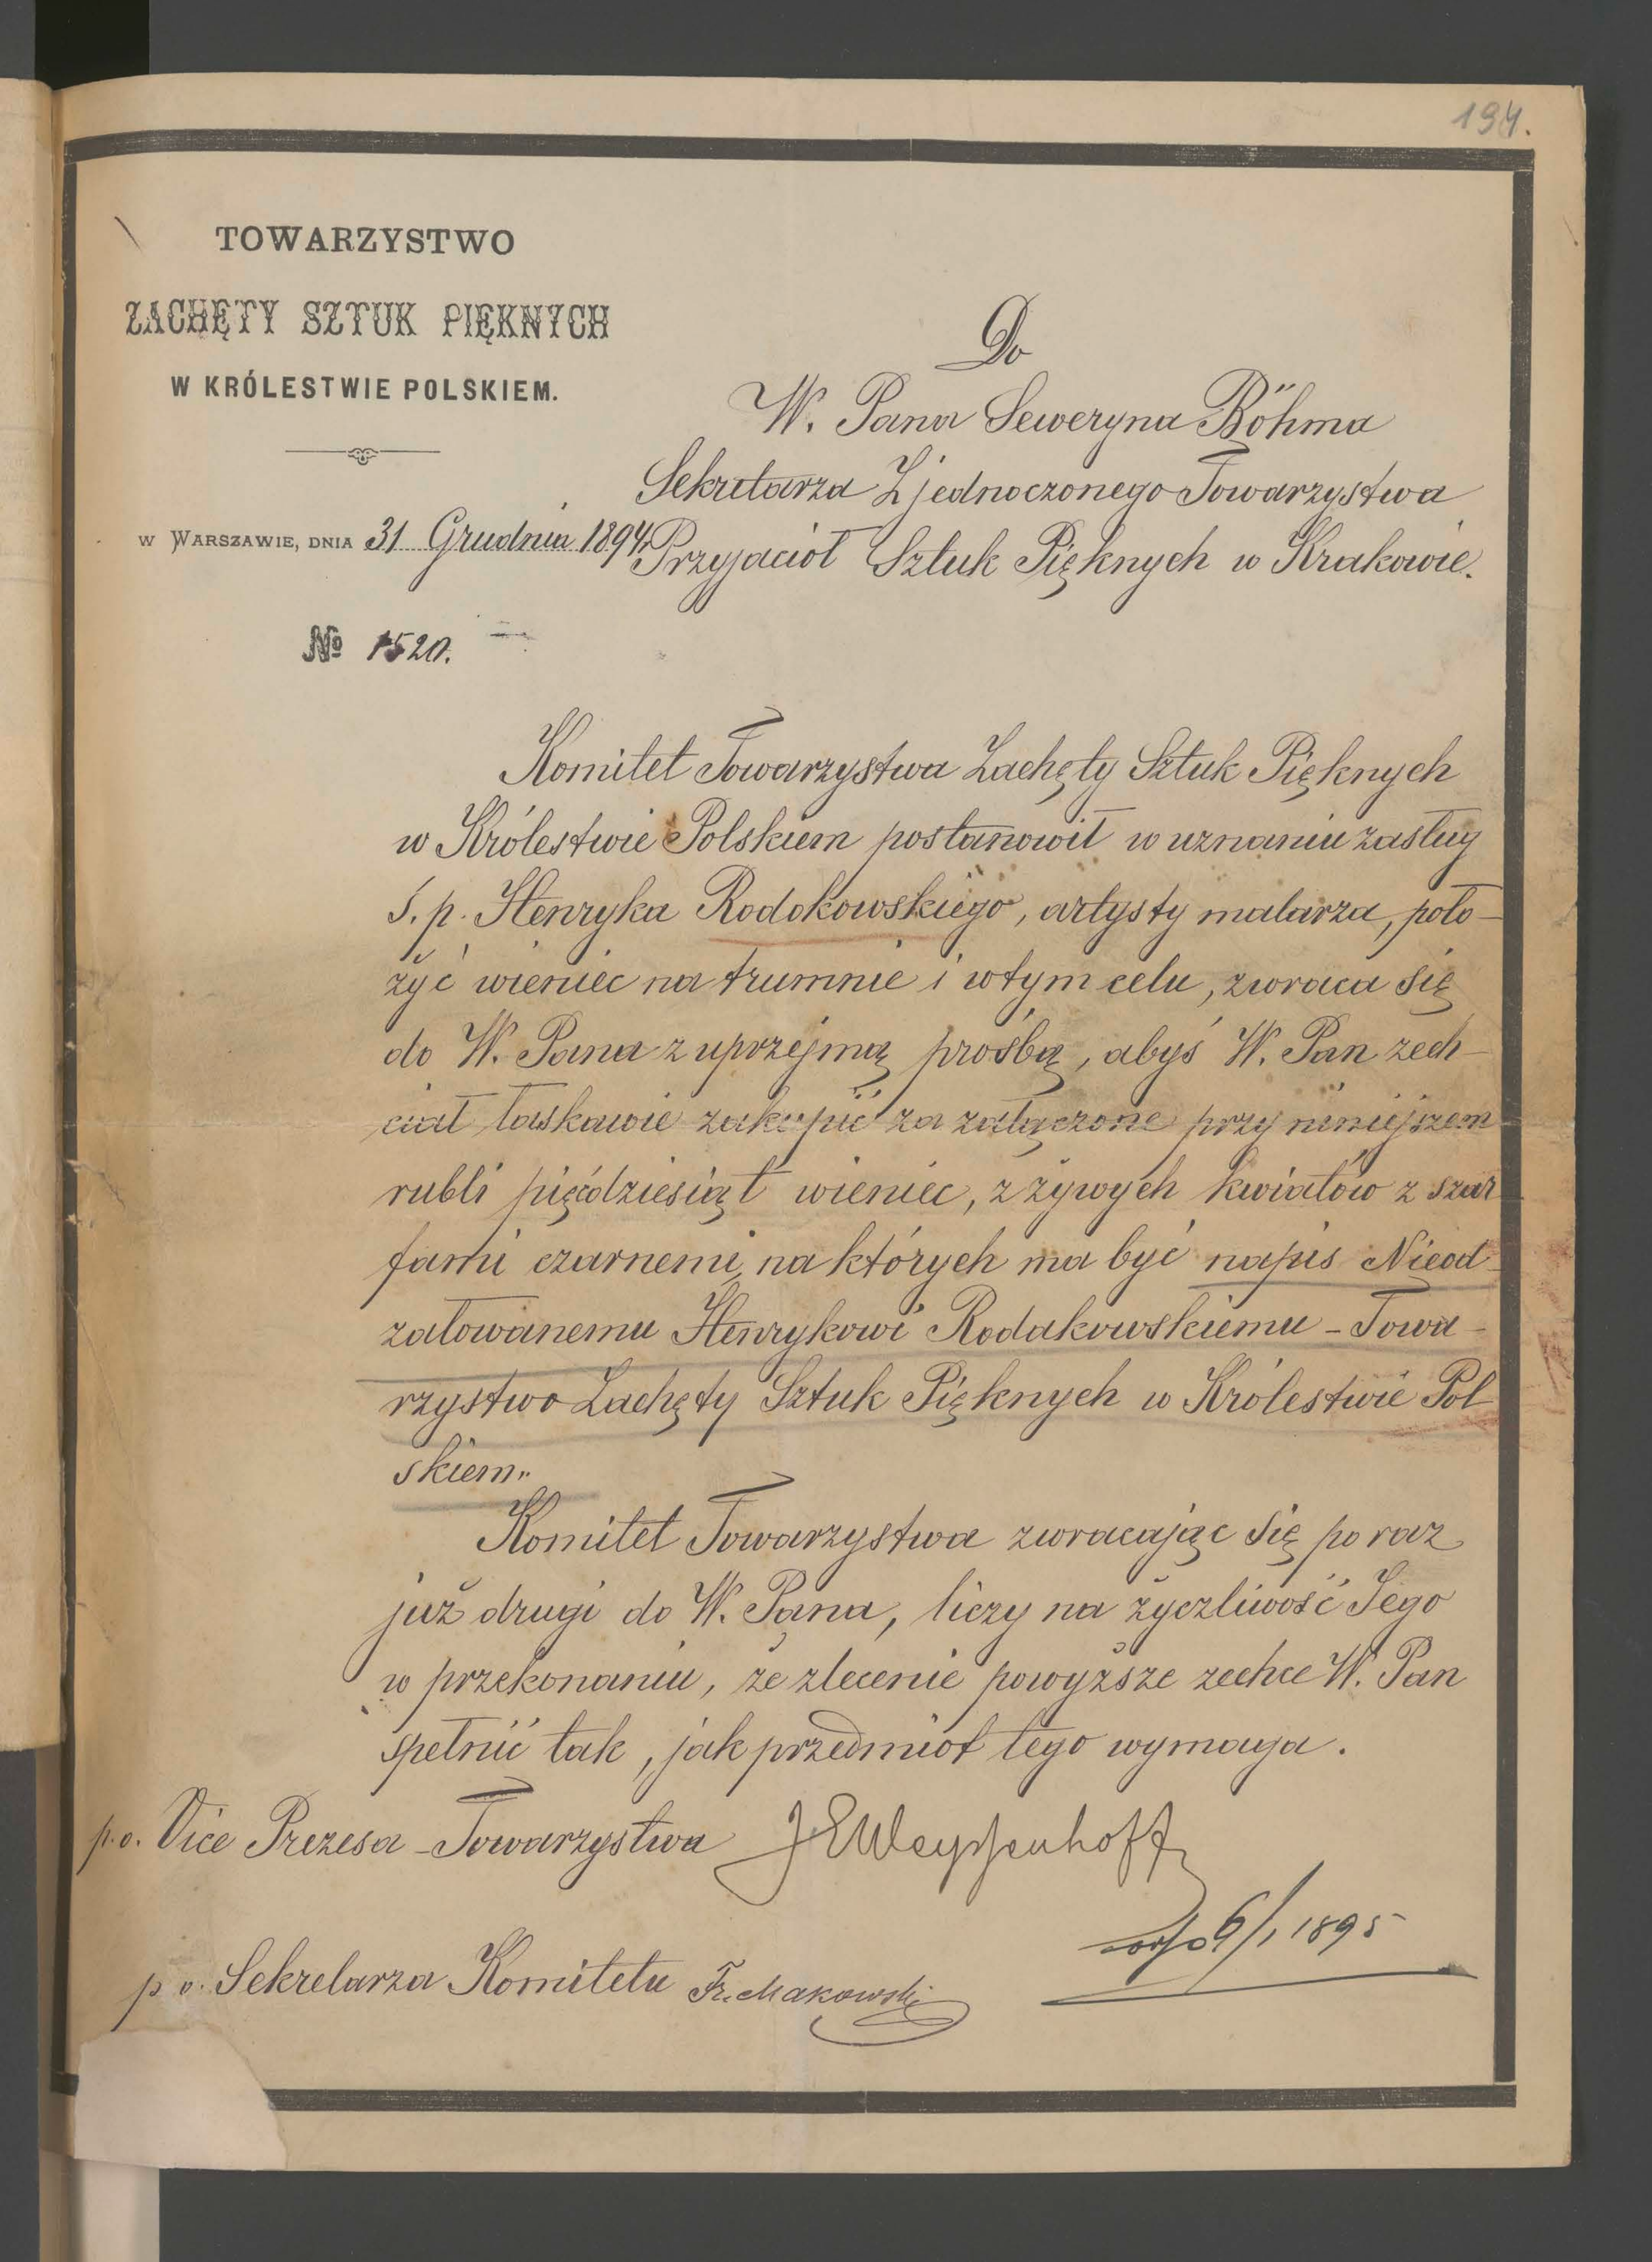 194.
TOWARZYSTWO
ZACHĘTY SZTUK PIĘKNYCH
W KRÓLESTWIE POLSKIEM.
w Warszawie, dnia 31 Grudnia 1894
№ 1520.
Do
W. Pana Seweryna Böhma
Sekretarza Zjednoczonego Towarzystwa
Przyjaciół Sztuk Pięknych w Krakowie.
Komitet Towarzystwa Zachęty Sztuk Pięknych
w Królestwie Polskiem postanowił w uznaniu zasług
ś. p. Henryka Rodokowskiego, artysty malarza, poło-
żyć wieniec na trumnie i w tym celu, zwraca się
do W. Pana z uprzejmą prośbą, abyś W. Pan zech-
ciał łaskawie zakupić za załączone przy niniejszem
rubli pięćdziesiąt wieniec, z żywych kwiatów z szar
fami czarnemi, na których ma być napis Nieod-
żałowanemu Henrykowi Rodakowskiemu - Towa-
rzystwo Zachęty Sztuk Pięknych w Królestwie Pol
skiem."
Komitet Towarzystwa zwracając się po raz
już drugi do W. Pana, liczy na życzliwość Jego
w przekonaniu, że zlecenie powyższe zechce W. Pan
spełnić tak, jak przedmiot tego wymaga.
p.o. Vice Prezesa Towarzystwa JEWeyssenhoff
6/1 1895
p o. Sekretarza Komitetu Fr. Makowski